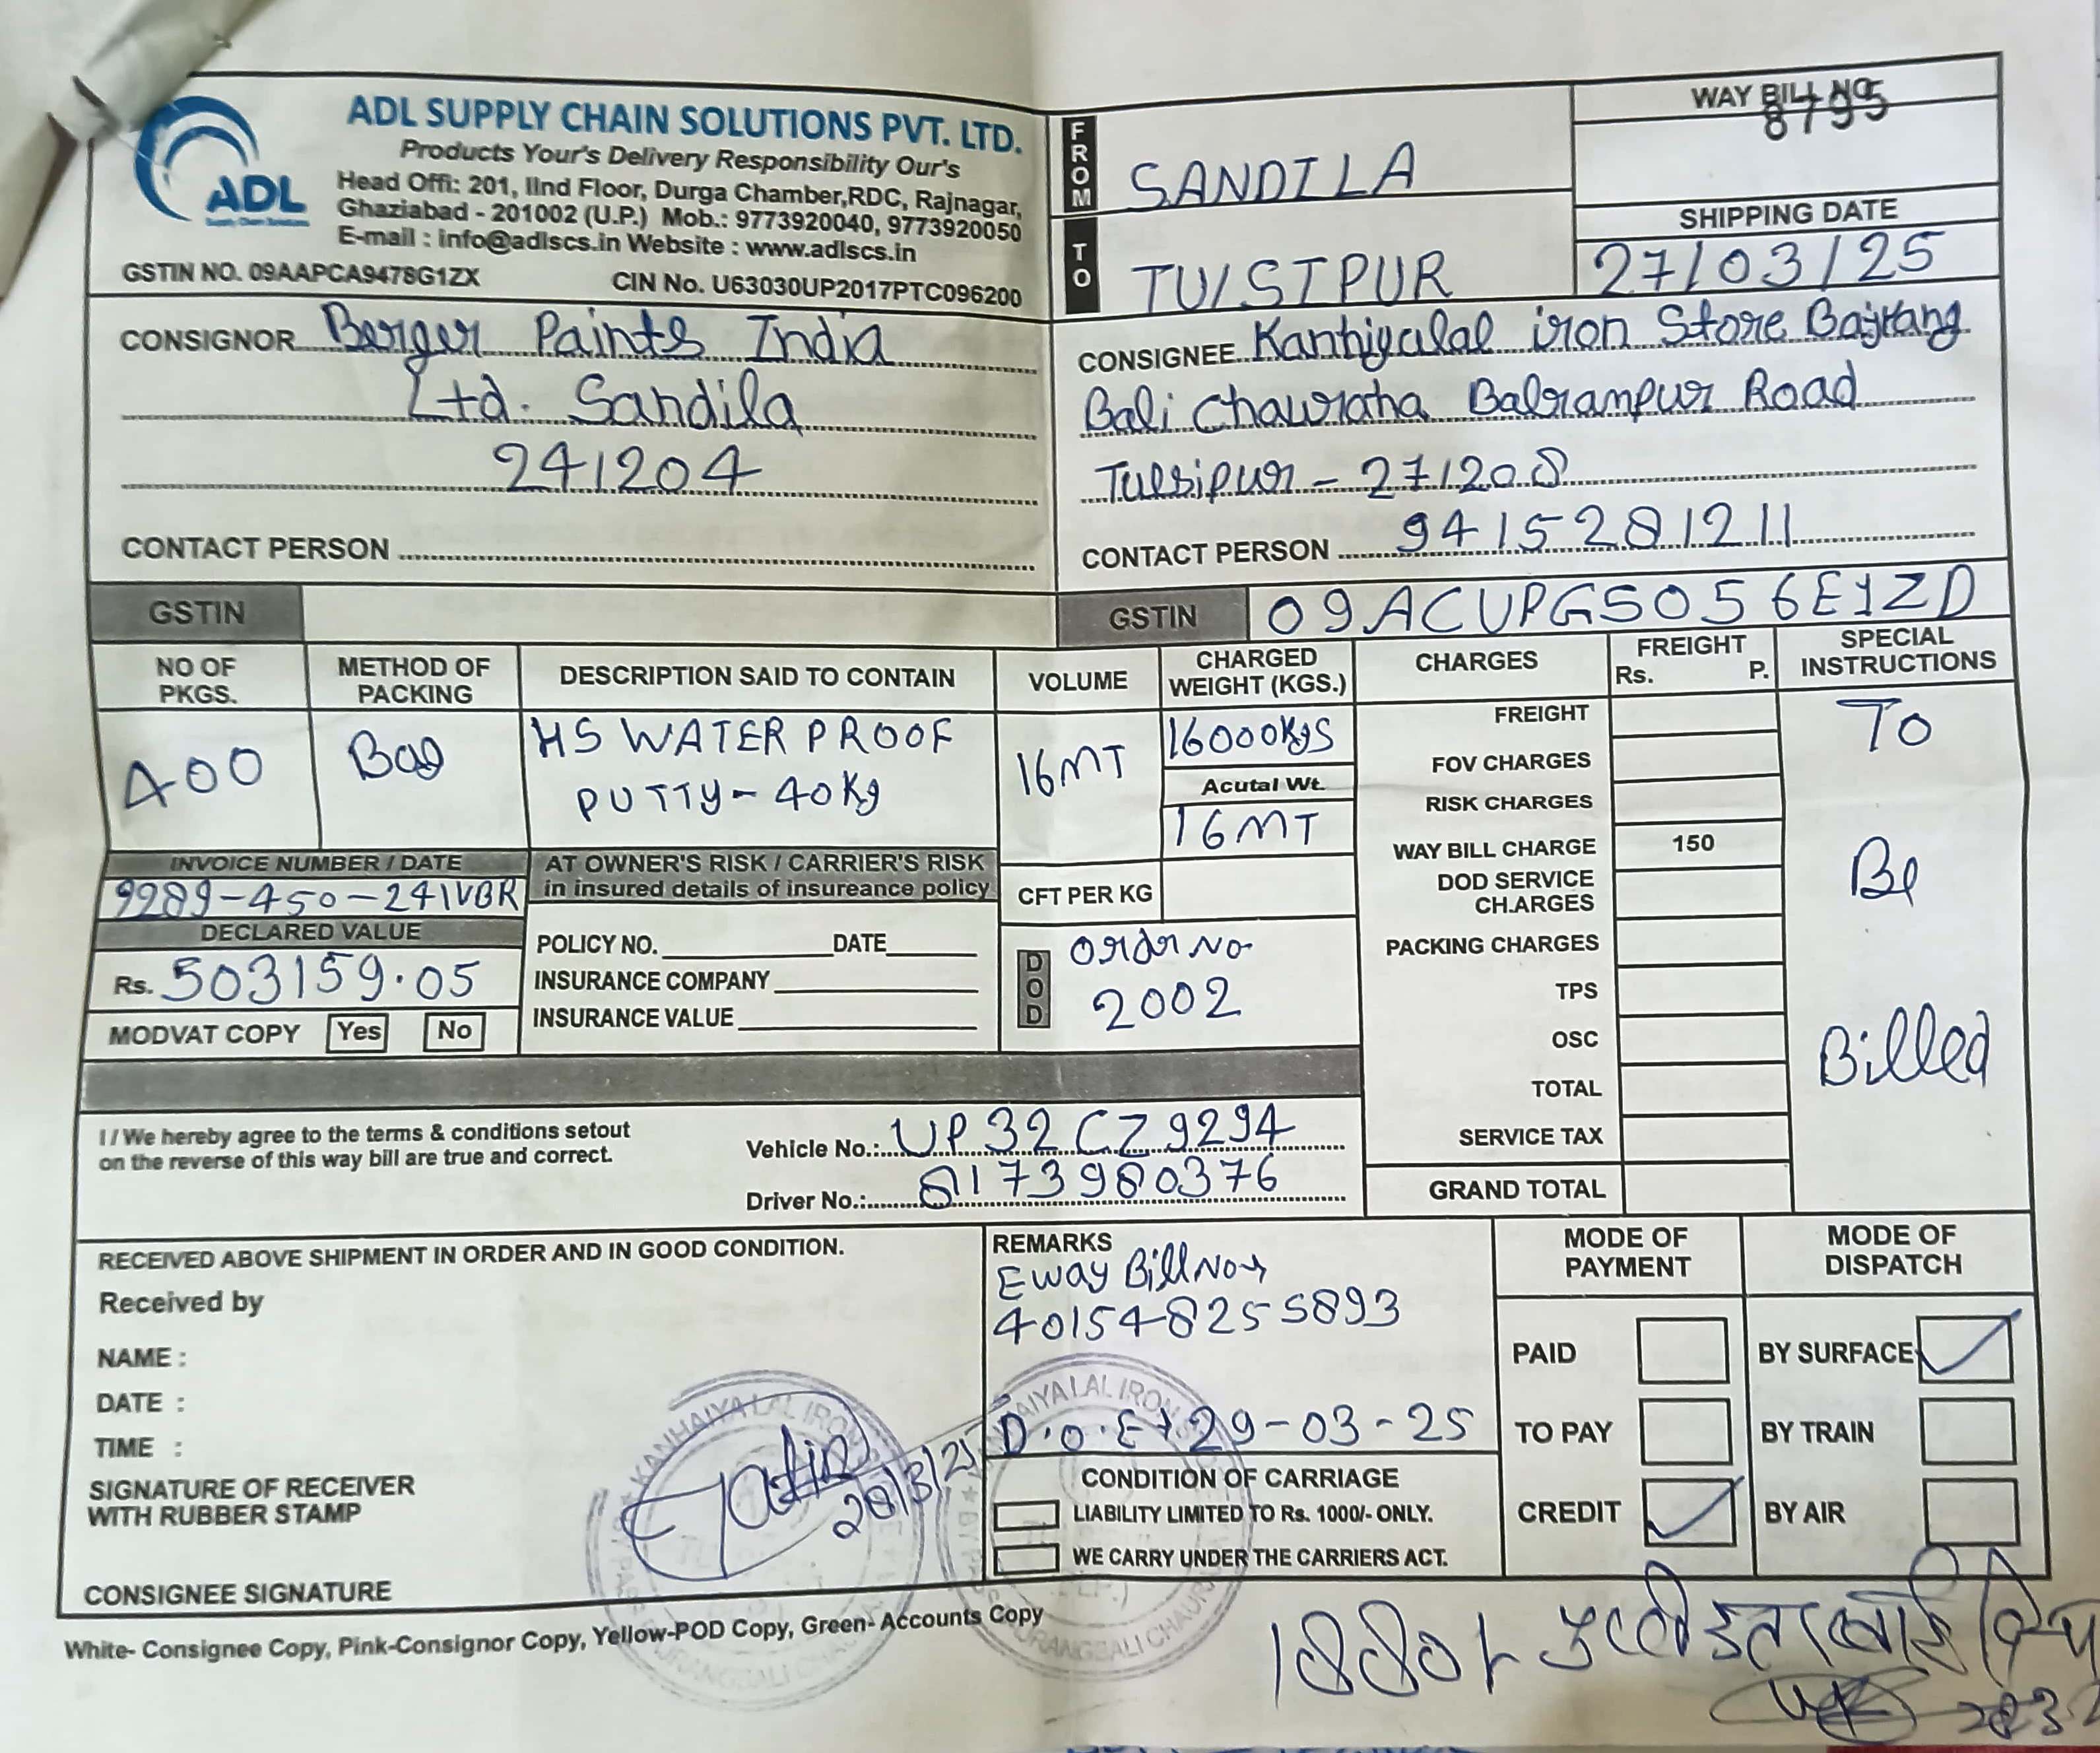 ADL SUPPLY CHAIN SOLUTIONS PVT. LTD.
Products Your's Delivery Responsibility Our's
Head Offi: 201, IInd Floor, Durga Chamber,RDC, Rajnagar,
Ghaziabad - 201002 (U.P.) Mob.: 9773920040, 9773920050
E-mail : info@adlscs.in Website : www.adlscs.in
ADL
Supply Chain Solutions
GSTIN NO. 09AAPCA9478G1ZX CIN No. U63030UP2017PTC096200
FROM SANDILA
TO TULSIPUR
WAY BILL NO.
8795
SHIPPING DATE
27/03/25
CONSIGNOR Berger Paints India
Ltd. Sandila
241204
CONTACT PERSON
CONSIGNEE Kanhiyalal iron Store Bajrang
Bali Chawraha Balrampur Road
Tulsipur - 271208
CONTACT PERSON 9415281211
GSTIN
GSTIN 09ACUPG5056E1ZD
NO OF PKGS.
METHOD OF PACKING
DESCRIPTION SAID TO CONTAIN
VOLUME
CHARGED WEIGHT (KGS.)
CHARGES
FREIGHT
Rs. P.
SPECIAL INSTRUCTIONS
400
Bag
HS WATER PROOF
PUTTY - 40Kg
16MT
16000Kgs
Acutal Wt.
16MT
CFT PER KG
FREIGHT
FOV CHARGES
RISK CHARGES
WAY BILL CHARGE 150
DOD SERVICE CH.ARGES
PACKING CHARGES
TPS
OSC
TOTAL
SERVICE TAX
GRAND TOTAL
To
Be
Billed
INVOICE NUMBER / DATE
9289-450-241VBR
DECLARED VALUE
Rs. 503159.05
MODVAT COPY Yes No
AT OWNER'S RISK / CARRIER'S RISK
in insured details of insureance policy
POLICY NO. DATE
INSURANCE COMPANY
INSURANCE VALUE
DOD
Order No
2002
I / We hereby agree to the terms & conditions setout
on the reverse of this way bill are true and correct.
Vehicle No.: UP 32 CZ 9294
Driver No.: 8173980376
RECEIVED ABOVE SHIPMENT IN ORDER AND IN GOOD CONDITION.
Received by
NAME :
DATE :
TIME :
SIGNATURE OF RECEIVER
WITH RUBBER STAMP
CONSIGNEE SIGNATURE
REMARKS
Eway Bill No
401548255893
D.O.E 29-03-25
CONDITION OF CARRIAGE
LIABILITY LIMITED TO Rs. 1000/- ONLY.
WE CARRY UNDER THE CARRIERS ACT.
MODE OF PAYMENT
PAID
TO PAY
CREDIT
MODE OF DISPATCH
BY SURFACE
BY TRAIN
BY AIR
White- Consignee Copy, Pink-Consignor Copy, Yellow-POD Copy, Green- Accounts Copy